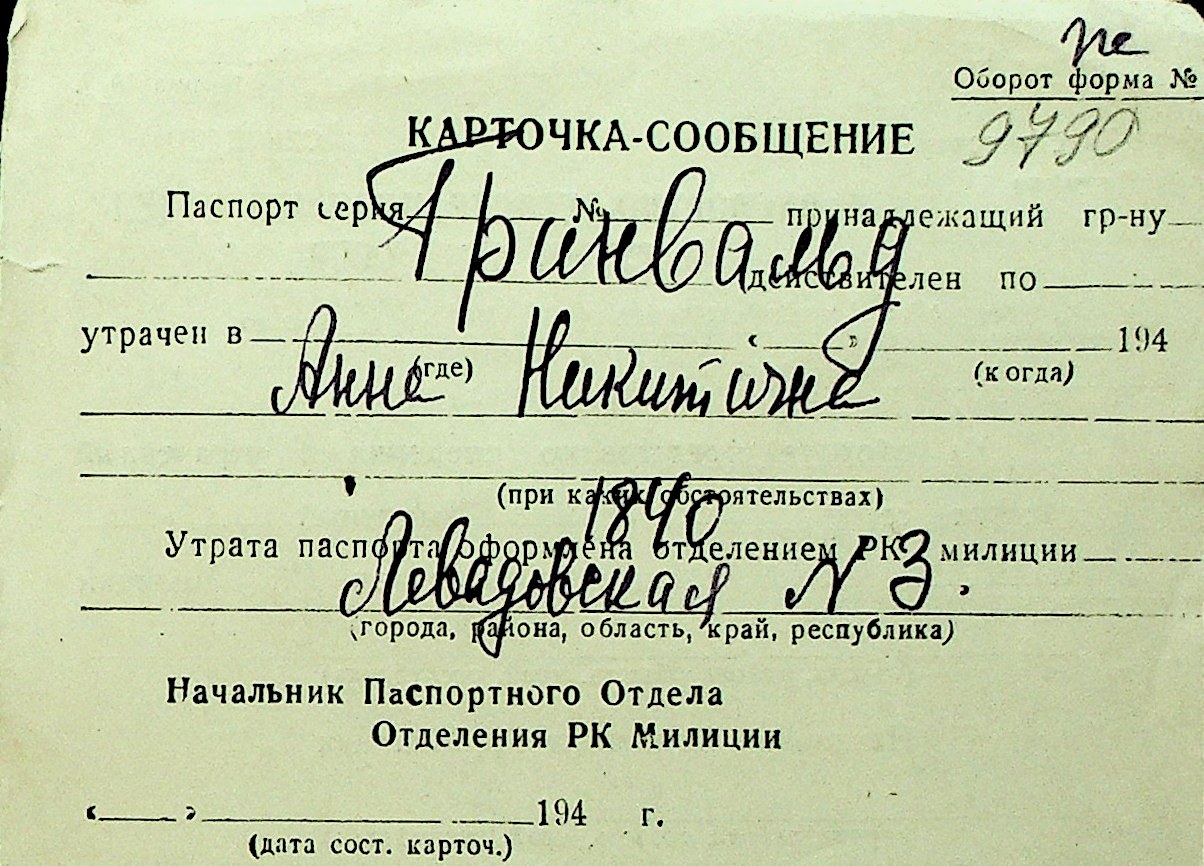 Оборот форма №
9790
КАРТОЧКА-СООБЩЕНИЕ
Паспорт серия № принадлежащий гр-ну
Гринвальд
действителен по
утрачен в « » 194
(где) (когда)
Анна Никитична
(при каких обстоятельствах)
1840
Утрата паспорта оформлена отделением РК милиции
Левадовская N 3.
(города, района, область, край, республика)
Начальник Паспортного Отдела
Отделения РК Милиции
« » 194 г.
(дата сост. карточ.)